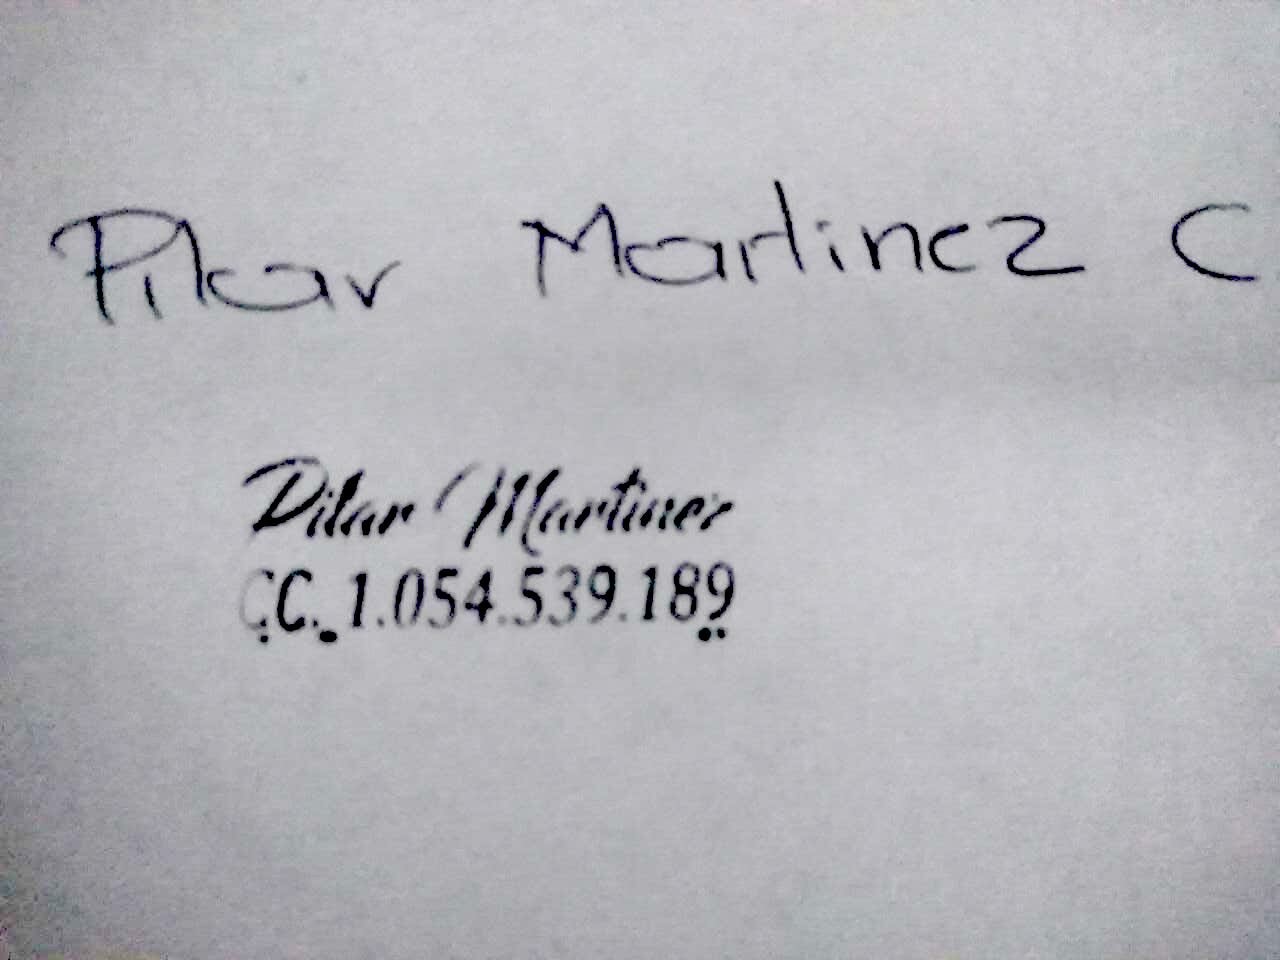 Pilar Martinez C
Pilar Martinez
CC. 1.054.539.189